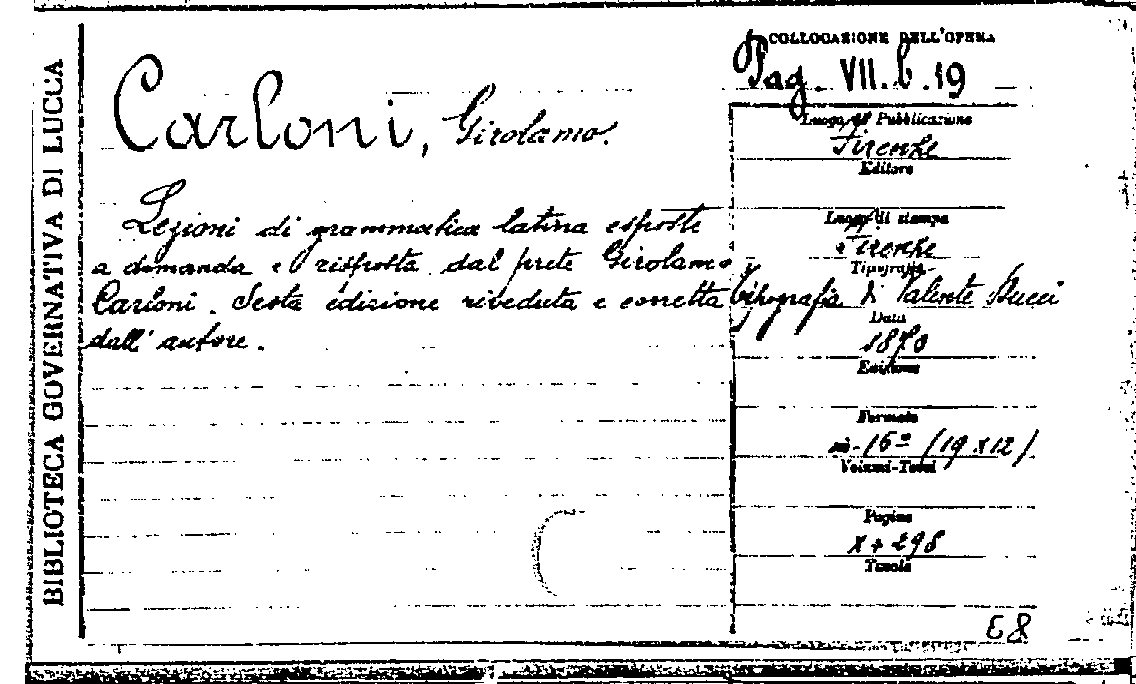 BIBLIOTECA GOVERNATIVA DI LUCCA
COLLOCAZIONE DELL'OPERA
Pag. VII. b. 19
Carloni, Girolamo.
Lezioni di grammatica latina esposte
a domanda e risposta dal prete Girolamo
Carloni. Sesta edizione riveduta e corretta
dall' autore.
Luogo di Pubblicazione
Firenze
Editore
Luogo di stampa
Firenze
Tipografia
tipografia di Valente
Data
1870
Edizione
Formato
in-16º (19 x 12)
Volumi-Tomi
Pagine
X + 298
Tavole
E8